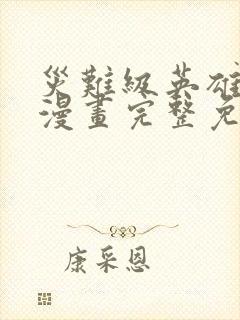 災難級英雄
漫畫完整免
康采恩